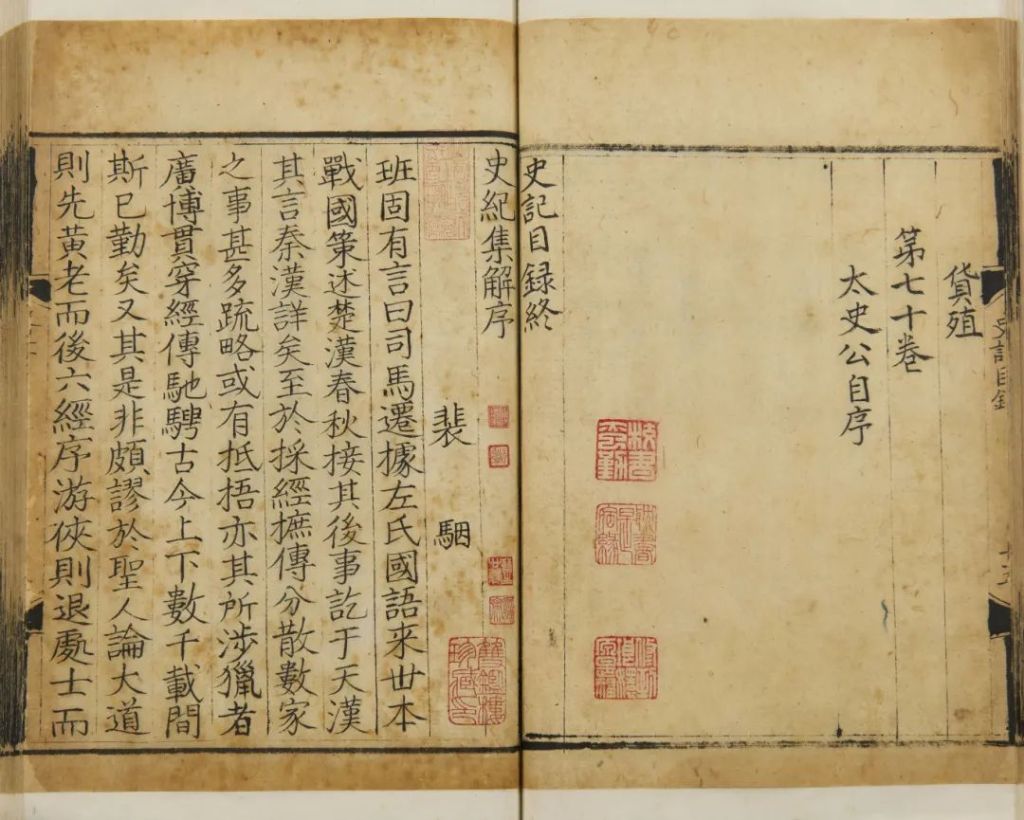 史記目錄
貨殖
第七十卷
太史公自序
史記目録終
史紀集解序
裴駰
班固有言曰司馬遷據左氏國語采丗本
戰國策述楚漢春秋接其後事訖于天漢
其言秦漢詳矣至於採經摭傳分散數家
之事甚多疏略或有抵捂亦其所涉獵者
廣博貫穿經傳馳騁古今上下數千載間
斯已勤矣又其是非頗謬於聖人論大道
則先黃老而後六經序游俠則退處士而
雙鑑樓珍藏印